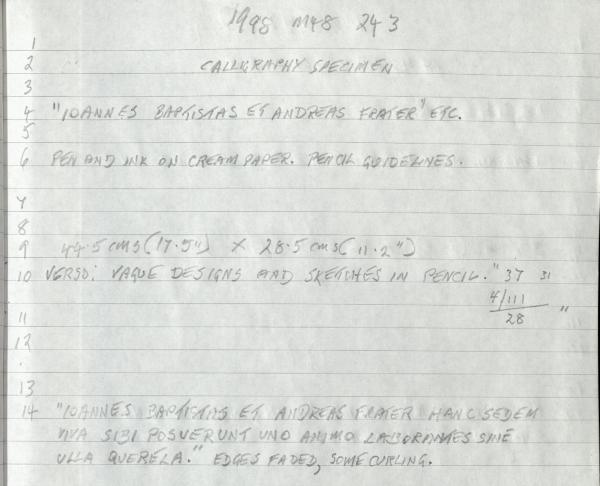 1998 M48 243
1
2 CALLIGRAPHY SPECIMEN
3
4 "IOANNES BAPTISTAS ET ANDREAS FRATER" ETC.
5
6 PEN AND INK ON CREAM PAPER. PENCIL GUIDELINES.
7
8
9 44.5 cms (17.5") X 28.5 cms (11.2")
10 VERSO: VAGUE DESIGNS AND SKETCHES IN PENCIL. "37 31
4/111
11 28 "
12
13
14 "IOANNES BAPTISTAS ET ANDREAS FRATER HANC SEDEM
VIVA SIBI POSUERUNT UNO ANIMO LABORANTES SINE
ULLA QUERELA." EDGES FADED, SOME CURLING.